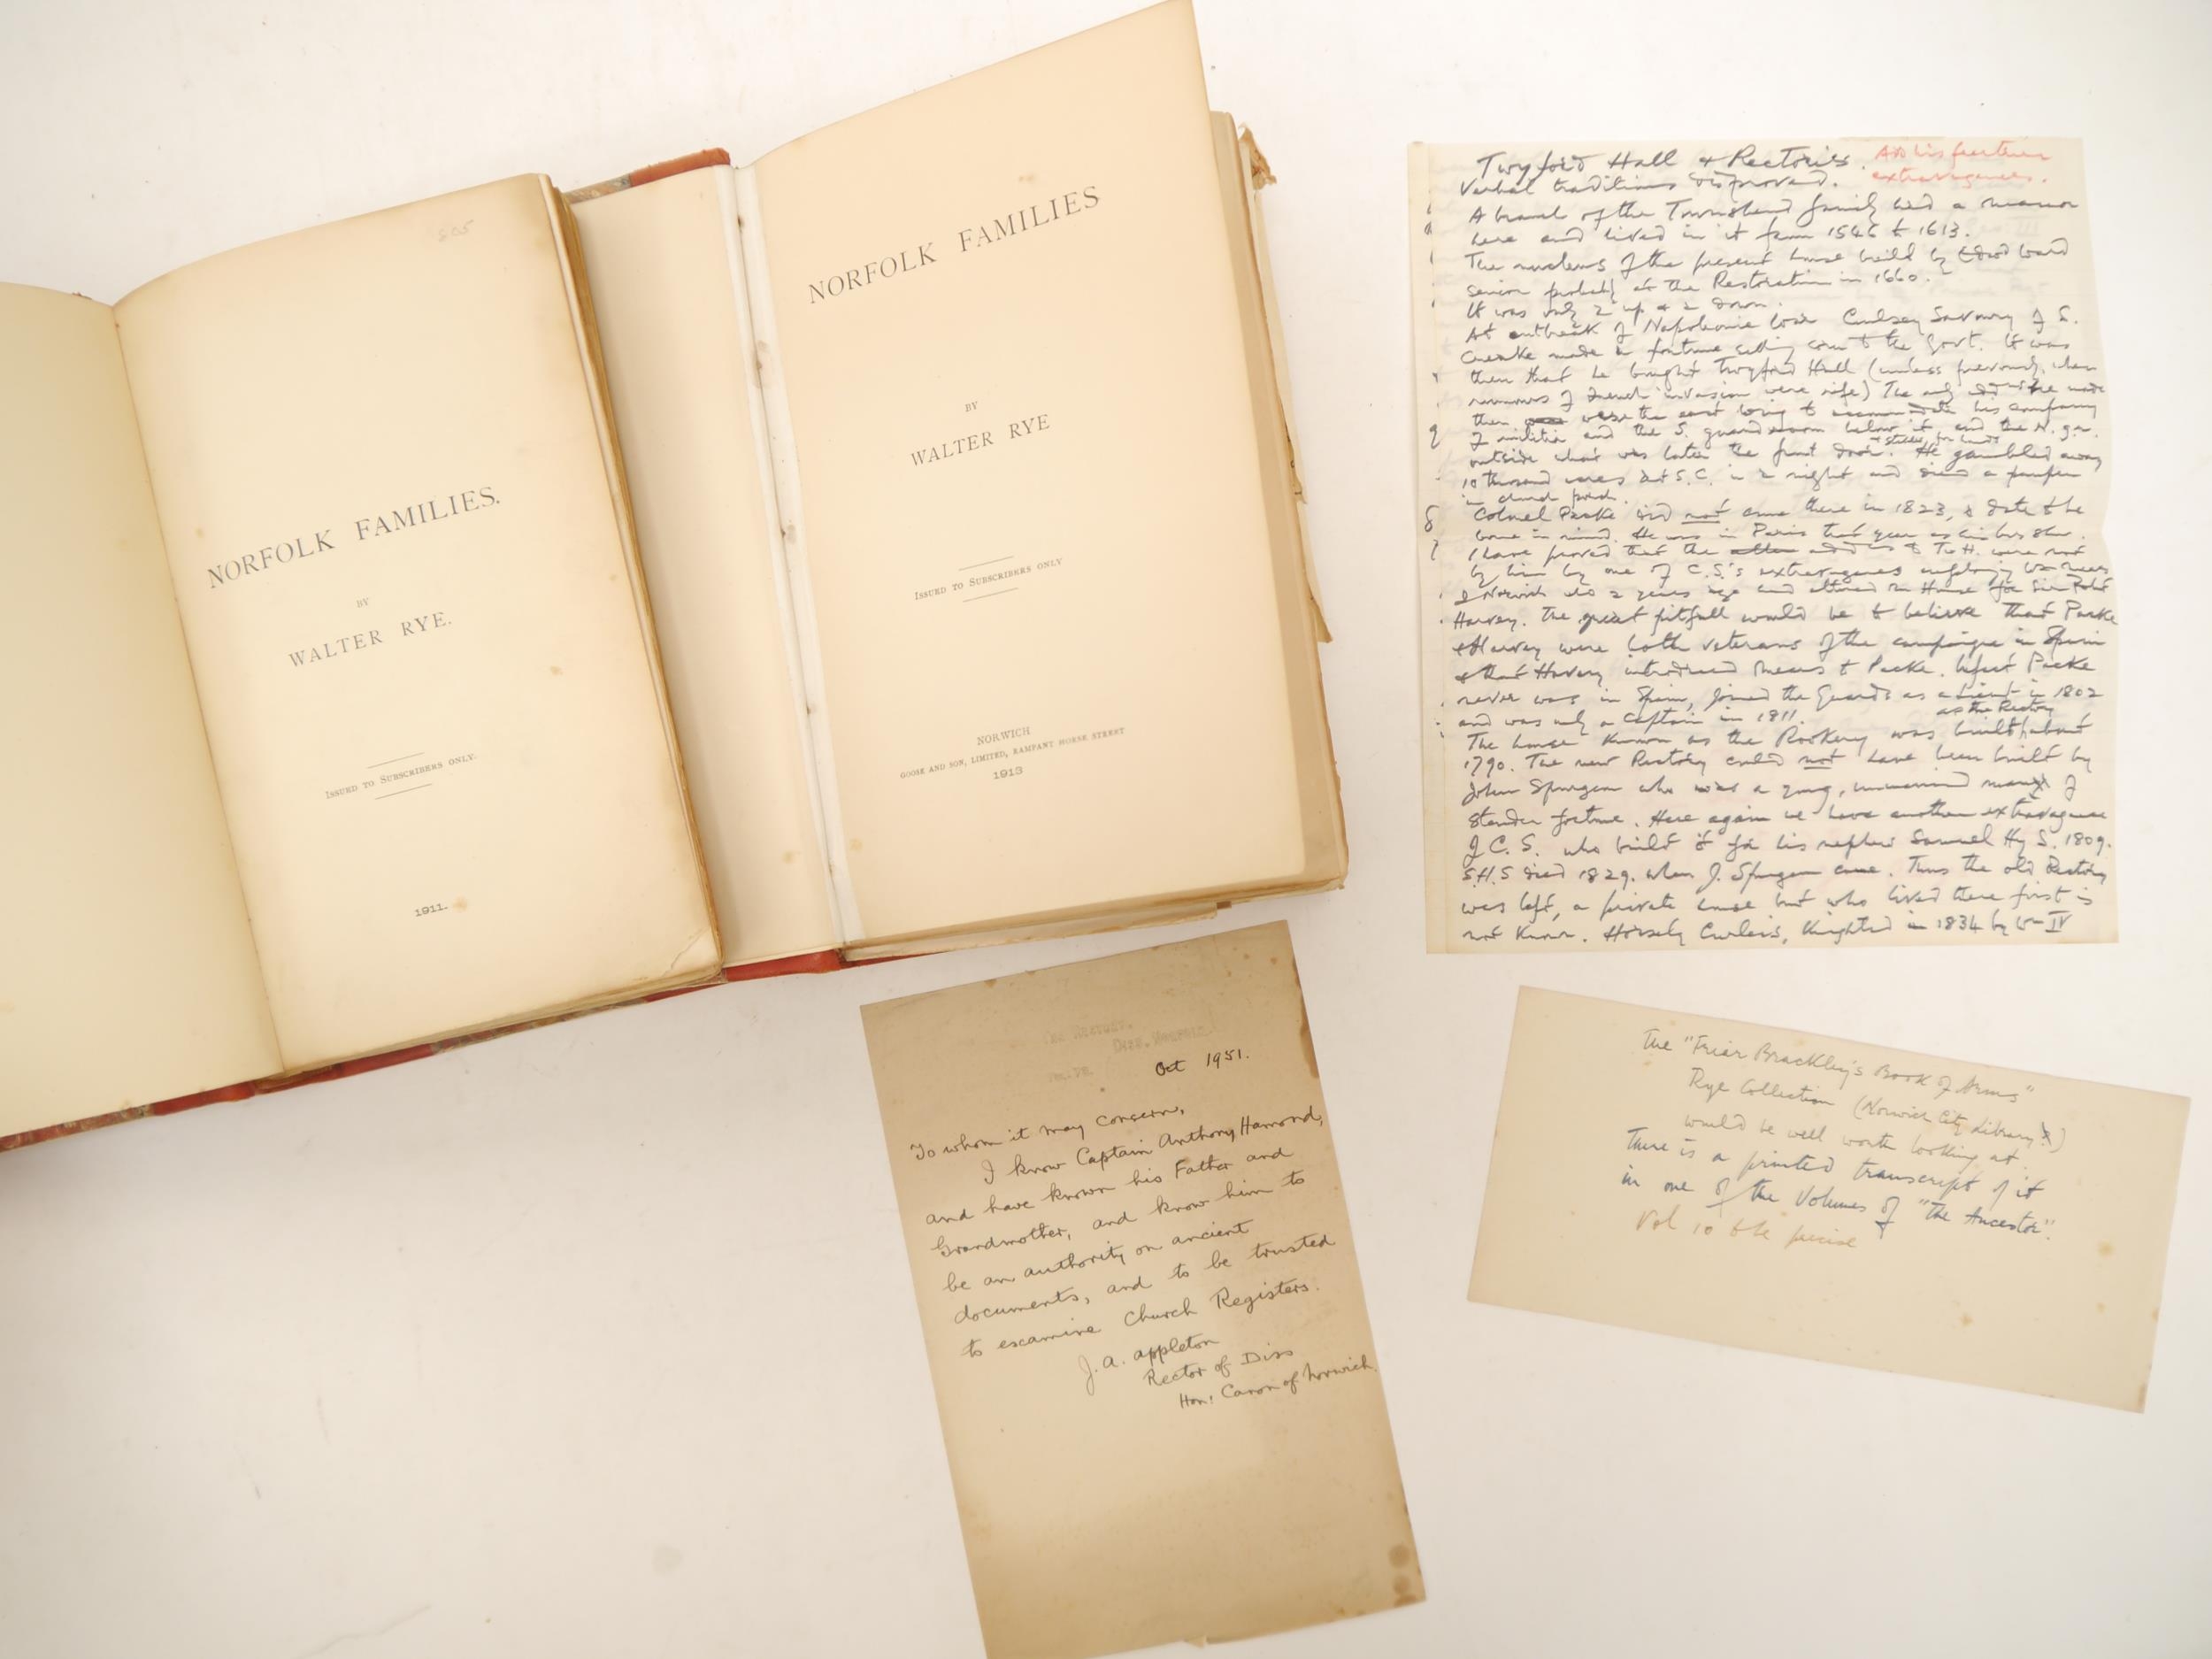 805
NORFOLK FAMILIES.
BY
WALTER RYE.
ISSUED TO SUBSCRIBERS ONLY.
1911.
NORFOLK FAMILIES
BY
WALTER RYE
ISSUED TO SUBSCRIBERS ONLY
NORWICH
GOOSE AND SON, LIMITED, RAMPANT HORSE STREET
1913
Twyford Hall & Rectories.
extravagances.
Verbal traditions disproved.
A branch of the Townshend family had a manor
here and lived in it from 1546 to 1613.
The nucleus of the present house build by Ward
senior probably at the Restoration in 1660.
It was only 2 up & 2 down.
At outbreak of Napoleonic War Savoury of S.
Creake made a fortune selling corn to the Govt. It was
then that he bought Twyford Hall (unless previously, when
rumours of French invasion were rife) The only made
then were the east wing to accommodate his company
of militia and the S. guard room below it and the N. g.r.
outside what was later the front door. He gambled away
10 thousand acres at S.C. in a night and died a pauper
in
Colonel Packe did not come there in 1823, a date to be
borne in mind. He was in Paris that year as
I have proved that the to T.H. were not
by him by one of C.S.'s extravagances employing
of Norwich who 2 years ago had altered House for Sir Robt
Harvey. The great pitfall would be to believe that Packe
& Harvey were both veterans of the campaigns in Spain
& that Harvey introduced Mears to Packe. In fact Packe
never was in Spain, joined the Guards as a Lieut in 1802
and was only a Captain in 1811.
as the Rectory
The house known as the Rookery was built about
1790. The new Rectory could not have been built by
John Spurgeon who was a young, unmarried man of
slender fortune. Here again we have another extravagance
of C.S. who build it for his nephew Samuel Hy S. 1809.
S.H.S died 1829. when J. Spurgeon came. Thus the old Rectory
was left, a private house but who lived there first is
not known. Horsely Curteis, knighted in 1834 by Wm IV
THE RECTORY,
DISS, NORFOLK.
Oct 1951.
To whom it may concern,
I know Captain Anthony Hamond,
and have known his Father and
Grandmother, and know him to
be an authority on ancient
documents, and to be trusted
to examine Church Registers.
J. A. Appleton
Rector of Diss
Hon: Canon of Norwich.
The "Friar Brackley's Book of Arms"
Rye Collection (Norwich City Library?)
would be well worth looking at.
There is a printed transcript of it
in one of the Volumes of "The Ancestor".
Vol 10 to be precise